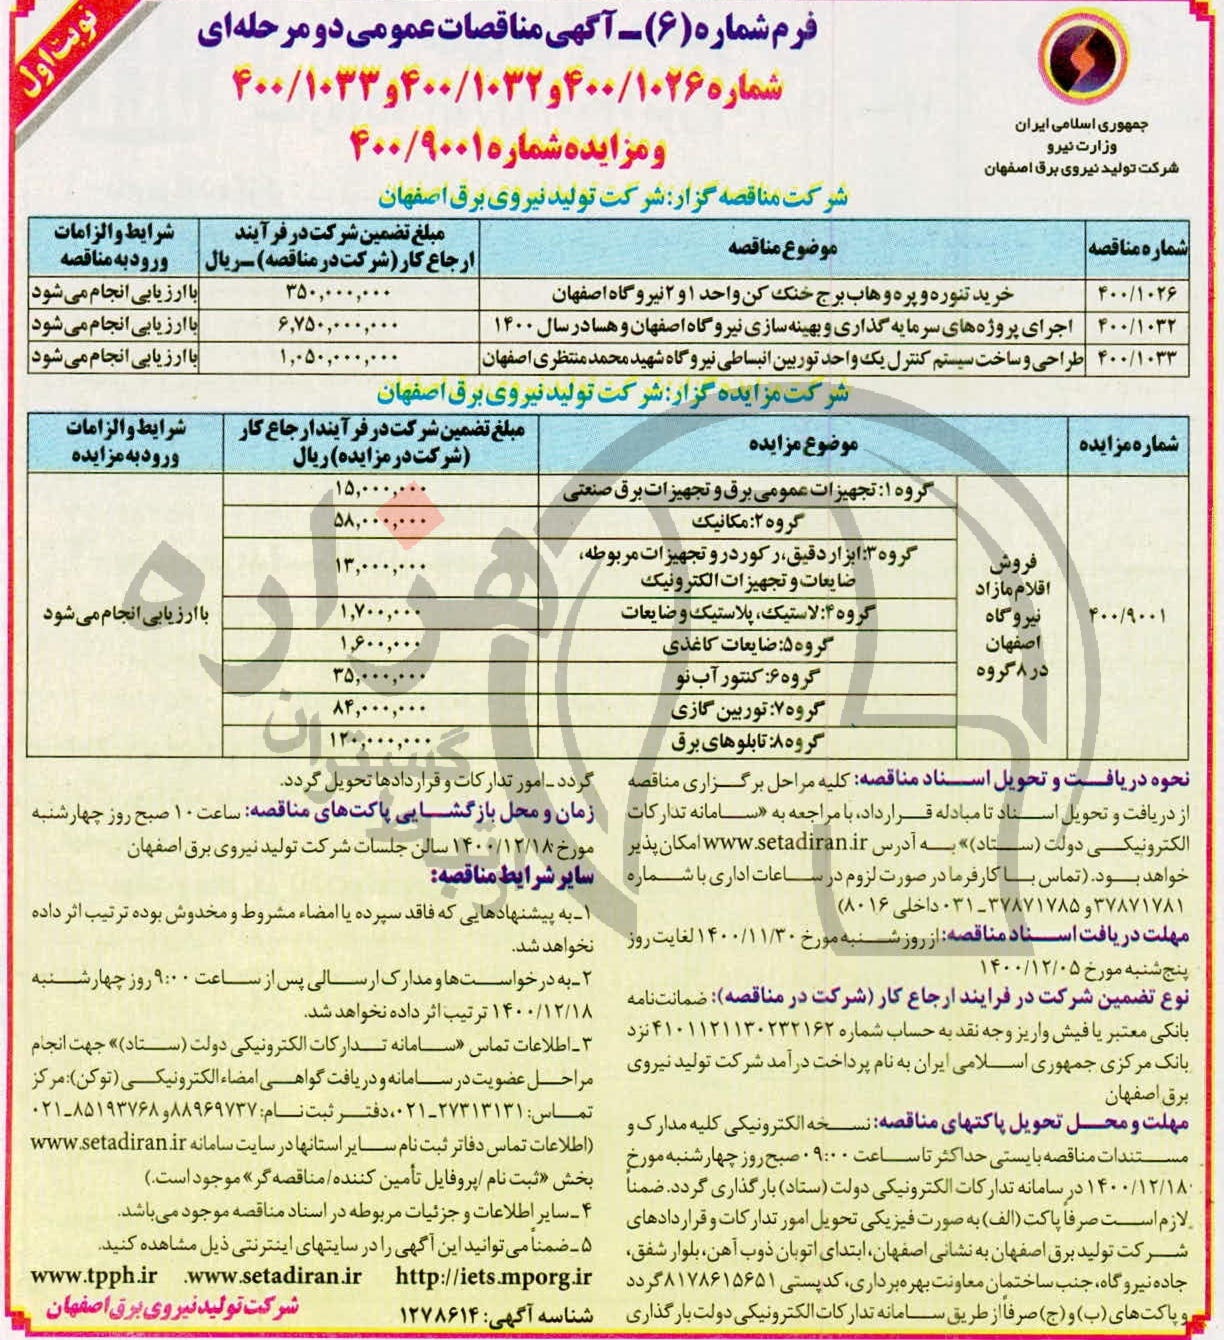 نوبت اول
فرم شماره (۶) ـ آگهی مناقصات عمومی دو مرحله‌ای
شماره ۴۰۰/۱۰۲۶ و ۴۰۰/۱۰۳۲ و ۴۰۰/۱۰۳۳
و مزایده شماره ۴۰۰/۹۰۰۱
جمهوری اسلامی ایران
وزارت نیرو
شرکت تولید نیروی برق اصفهان
شرکت مناقصه گزار: شرکت تولید نیروی برق اصفهان
شماره مناقصه | موضوع مناقصه | مبلغ تضمین شرکت در فرآیند ارجاع کار (شرکت در مناقصه) ـ ریال | شرایط و الزامات ورود به مناقصه
۴۰۰/۱۰۲۶ | خرید تنوره و پره و هاب برج خنک کن واحد ۱ و ۲ نیروگاه اصفهان | ۳۵۰,۰۰۰,۰۰۰ | با ارزیابی انجام می‌شود
۴۰۰/۱۰۳۲ | اجرای پروژه‌های سرمایه گذاری و بهینه سازی نیروگاه اصفهان و هسا در سال ۱۴۰۰ | ۶,۷۵۰,۰۰۰,۰۰۰ | با ارزیابی انجام می‌شود
۴۰۰/۱۰۳۳ | طراحی و ساخت سیستم کنترل یک واحد توربین انبساطی نیروگاه شهید محمد منتظری اصفهان | ۱,۰۵۰,۰۰۰,۰۰۰ | با ارزیابی انجام می‌شود
شرکت مزایده گزار: شرکت تولید نیروی برق اصفهان
شماره مزایده | موضوع مزایده | مبلغ تضمین شرکت در فرآیند ارجاع کار (شرکت در مزایده) ریال | شرایط و الزامات ورود به مزایده
۴۰۰/۹۰۰۱ | فروش اقلام مازاد نیروگاه اصفهان در ۸ گروه | با ارزیابی انجام می‌شود
گروه ۱: تجهیزات عمومی برق و تجهیزات برق صنعتی | ۱۵,۰۰۰,۰۰۰
گروه ۲: مکانیک | ۵۸,۰۰۰,۰۰۰
گروه ۳: ابزار دقیق، رکوردر و تجهیزات مربوطه،
ضایعات و تجهیزات الکترونیک | ۱۳,۰۰۰,۰۰۰
گروه ۴: لاستیک، پلاستیک و ضایعات | ۱,۷۰۰,۰۰۰
گروه ۵: ضایعات کاغذی | ۱,۶۰۰,۰۰۰
گروه ۶: کنتور آب نو | ۳۵,۰۰۰,۰۰۰
گروه ۷: توربین گازی | ۸۴,۰۰۰,۰۰۰
گروه ۸: تابلوهای برق | ۱۲۰,۰۰۰,۰۰۰
نحوه دریافت و تحویل اسناد مناقصه: کلیه مراحل برگزاری مناقصه
از دریافت و تحویل اسناد تا مبادله قرارداد، با مراجعه به «سامانه تدارکات
الکترونیکی دولت (ستاد)» به آدرس www.setadiran.ir امکان پذیر
خواهد بود. (تماس با کارفرما در صورت لزوم در ساعات اداری با شماره
۳۷۸۷۱۷۸۱ و ۳۷۸۷۱۷۸۵ ـ ۰۳۱ داخلی ۸۰۱۶)
مهلت دریافت اسناد مناقصه: از روز شنبه مورخ ۱۴۰۰/۱۱/۳۰ لغایت روز
پنج‌شنبه مورخ ۱۴۰۰/۱۲/۰۵
نوع تضمین شرکت در فرایند ارجاع کار (شرکت در مناقصه): ضمانت‌نامه
بانکی معتبر یا فیش واریز وجه نقد به حساب شماره ۴۱۰۱۱۲۱۱۳۰۲۳۲۱۶۲ نزد
بانک مرکزی جمهوری اسلامی ایران به نام پرداخت درآمد شرکت تولید نیروی
برق اصفهان
مهلت و محل تحویل پاکتهای مناقصه: نسخه الکترونیکی کلیه مدارک و
مستندات مناقصه بایستی حداکثر تا ساعت ۰۹:۰۰ صبح روز چهارشنبه مورخ
۱۴۰۰/۱۲/۱۸ در سامانه تدارکات الکترونیکی دولت (ستاد) بارگذاری گردد. ضمناً
لازم است صرفاً پاکت (الف) به صورت فیزیکی تحویل امور تدارکات و قراردادهای
شرکت تولید برق اصفهان به نشانی اصفهان، ابتدای اتوبان ذوب آهن، بلوار شفق،
جاده نیروگاه، جنب ساختمان معاونت بهره‌برداری، کدپستی ۸۱۷۸۶۱۵۶۵۱ گردد
و پاکت‌های (ب) و (ج) صرفاً از طریق سامانه تدارکات الکترونیکی دولت بارگذاری
گردد ـ امور تدارکات و قراردادها تحویل گردد.
زمان و محل بازگشایی پاکت‌های مناقصه: ساعت ۱۰ صبح روز چهارشنبه
مورخ ۱۴۰۰/۱۲/۱۸ سالن جلسات شرکت تولید نیروی برق اصفهان
سایر شرایط مناقصه:
۱ـ به پیشنهادهایی که فاقد سپرده یا امضاء مشروط و مخدوش بوده ترتیب اثر داده
نخواهد شد.
۲ـ به درخواست‌ها و مدارک ارسالی پس از ساعت ۹:۰۰ روز چهارشنبه
۱۴۰۰/۱۲/۱۸ ترتیب اثر داده نخواهد شد.
۳ـ اطلاعات تماس «سامانه تدارکات الکترونیکی دولت (ستاد)» جهت انجام
مراحل عضویت در سامانه و دریافت گواهی امضاء الکترونیکی (توکن): مرکز
تماس: ۲۷۳۱۳۱۳۱ـ۰۲۱، دفتر ثبت نام: ۸۸۹۶۹۷۳۷ و ۸۵۱۹۳۷۶۸ـ۰۲۱
(اطلاعات تماس دفاتر ثبت نام سایر استانها در سایت سامانه www.setadiran.ir
بخش «ثبت نام /پروفایل تأمین کننده/مناقصه‌گر» موجود است.)
۴ـ سایر اطلاعات و جزئیات مربوطه در اسناد مناقصه موجود می‌باشد.
۵ـ ضمناً می‌توانید این آگهی را در سایتهای اینترنتی ذیل مشاهده کنید.
www.tpph.ir .www.setadiran.ir http://iets.mporg.ir
شناسه آگهی: ۱۲۷۸۶۱۴
شرکت تولید نیروی برق اصفهان
هزاره
گستران